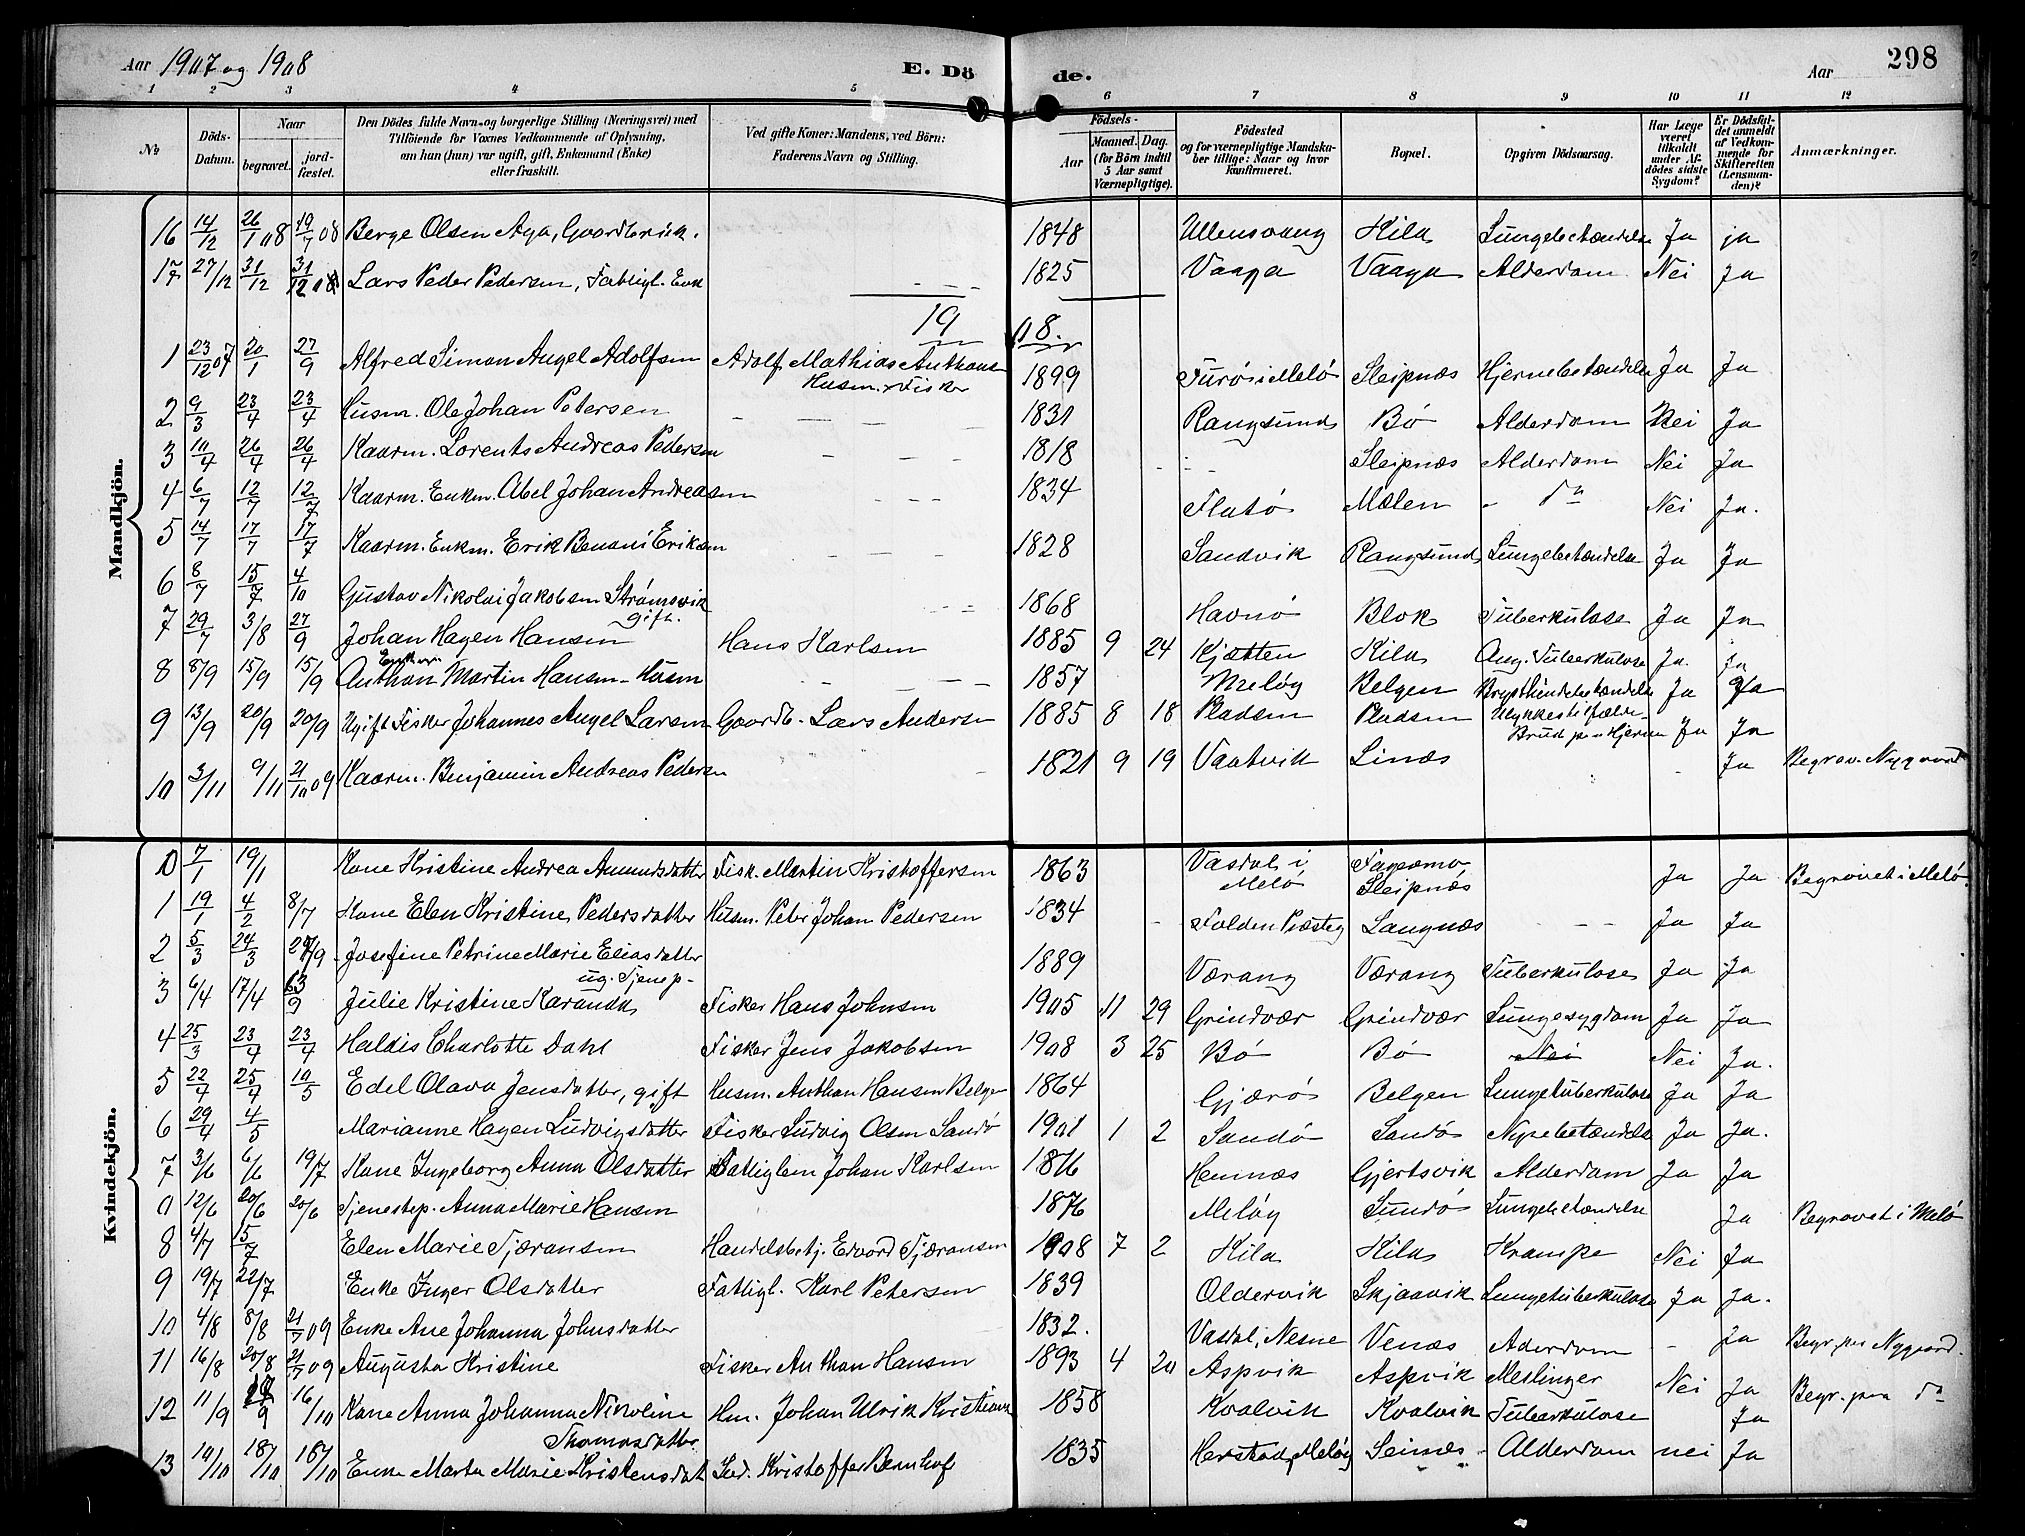 Aar 1907 og 1908
E. Dö de.
Aar
298
1 2 3 4 5 6 7 8 9 10 11 12
№
Döds-Datum.
Naar
begravet.
jord-fæstet.
Den Dödes fulde Navn og borgerlige Stilling (Næringsvei) med
Tilföiende for Voxnes Vedkommende af Oplysning,
om han (hun) var ugift, gift, Enkemand (Enke)
eller fraskilt.
Ved gifte Koner: Mandens, ved Börn:
Faderens Navn og Stilling.
Födsels-
Aar
Maaned. Dag.
(for Börn indtil
5 Aar samt
Værnepligtige).
Födested
og for værnepligtige Mandska-
ber tillige: Naar og hvor
konfirmeret.
Bopæl.
Opgiven Dödsaarsag.
Har Læge
været
tilkaldt
under Af-
dödes sidste
Sygdom?
Er Dödsfal-
det anmeldt
af Vedkom-
mende for
Skifteretten
(Lensman-
den)?
Anmærkninger.
Mandkjön.
16 14/12 26/1 08 19/7 08 Berge Olsen Aga, Gaardbruk. 1848 Ullensvang Kila Lungebetændelse Ja ja
17 27/12 31/12 31/12 08 Lars Peder Pedersen, Fattigl. Enk 1825 Vaaga Vaaga Alderdom Nei Ja
19 08.
1 23/12 07 20/1 27/9 Alfred Simon Angel Adolfsen Adolf Mathias Anthons Husm. & Fisker 1899 Furö i Melö Sleipnæs Hjernebetændelse Ja Ja
2 9/3 23/4 23/4 Husm. Ole Johan Petersen - - - - 1831 Rangsund Bö Alderdom Nei Ja
3 10/4 26/4 26/4 Kaarm. Lorents Andreas Pedersen - - - 1818 - - - Sleipnæs Alderdom Nei Ja
4 6/7 12/7 12/7 Kaarm. Enkm. Abel Johan Andreassen - - - 1834 Flatö Mælen - do Nei Ja.
5 14/7 17/7 17/7 Kaarm. Enkm. Erik Benoni Eriksen - - - 1828 Sandvik Rangsund Lungebetændelse Ja Ja
6 8/7 15/7 4/10 Gustav Nikolai Jakobsen Strömsvik gift. - - - 1868 Havnö Blok Tuberkulose Ja Ja
7 29/7 3/8 27/9 Johan Hagen Hansen Hans Karlsen 1885 9 24 Kjætten Kila Tuberkulose Ja. ja
8 8/9 15/9 15/9 Anthon Martin Hansen - Husm - - - 1857 Melöy Belgen Brysthindebetændelse Ja Ja
9 13/9 20/9 20/9 Ugift Fisker Johannes Angel Larsen Gaardb. Lars Andersen 1885 8 18 Pladsen Pladsen Ulykkestilfælde - Brud paa Hjernen Ja Ja
10 3/11 9/11 21/10 09 Kaarm. Benjamin Andreas Pedersen - 1821 9 19 Vaatvik Linæs - Ja Begrav. Nygaard
Kvindekjön.
0 7/1 19/1 Kone Kristine Andrea Amundsdatter Fisk. Martin Kristoffersen 1863 Vasdal i Melö Sleipnæs Ja Ja Begravet i Melö.
1 19/1 4/2 8/7 Kone Elen Kristine Pedersdatter Husm. Peter Johan Pedersen 1834 - Folden Præsteg Langnæs - - - Ja Ja
2 5/3 24/3 27/9 Josefine Petrine Marie Eliasdatter ug. Tjenep - 1889 Værang Værang Tuberkulose Ja Ja
3 6/4 17/4 Julie Kristine Karanda Fisker Hans Johnsen 1905 11 29 Grindvær Grindvær Lungesygdom Ja Ja
4 25/3 23/4 23/4 Haldis Charlotte Dahl Fisker Jens Jakobsen 1908 3 25 Bö Bö Nei Nei Ja.
5 22/4 25/4 10/5 Edel Olava Jensdatter, gift Husm. Anthon Hansen Belgen 1864 Gjærö Belgen Lungetuberkulose Ja Ja
6 29/4 4/5 Marianne Hagen Ludvigsdatter Fisker Ludvig Olsen Sandö 1901 1 2 Sandö Sandö Nyrebetændelse Ja Ja.
7 3/6 6/6 19/7 Kone Ingeborg Anna Olsdatter Fattiglem Johan Karlsen 1816 Hemnæs Gjertsvik Alderdom Ja Ja
0 12/6 20/6 20/6 Tjenestep. Anna Marie Hansen 1876 Melöy Sundö Lungebetændelse Ja Begravet i Melö
8 4/7 15/7 Elen Marie Tjæransen Handelsbetj. Edvard Tjæransen 1908 7 2 Kila Kila Krampe Nei Ja
9 19/7 22/7 Enke Inger Olsdatter Fattigl. Karl Petersen 1839 Oldervik Skjaavik Lungetuberkulose Ja Ja.
10 4/8 8/8 21/7 09 Enke Ane Johanna Johnsdatter 1832. Vasdal, Nesne Venæs Aderdom - Ja Begr. paa Nygaard.
11 16/8 20/8 21/7 09 Augusta Kristine Fisker Anthon Hansen 1893 4 20 Aspvik Aspvik Meslinger Nei Ja Begr. paa do
12 11/9 16/10 Kone Anna Johanna Nikoline Thomasdatter Hm. Johan Ulrik Kristians 1858 Kvalvik Kvalvik Tuberkulose Ja
13 10/10 18/10 18/10 Enke Marta Marie Kristensdat Kristoffer Bernhof 1835 Melöy Seinæs - Alderdom nei Ja